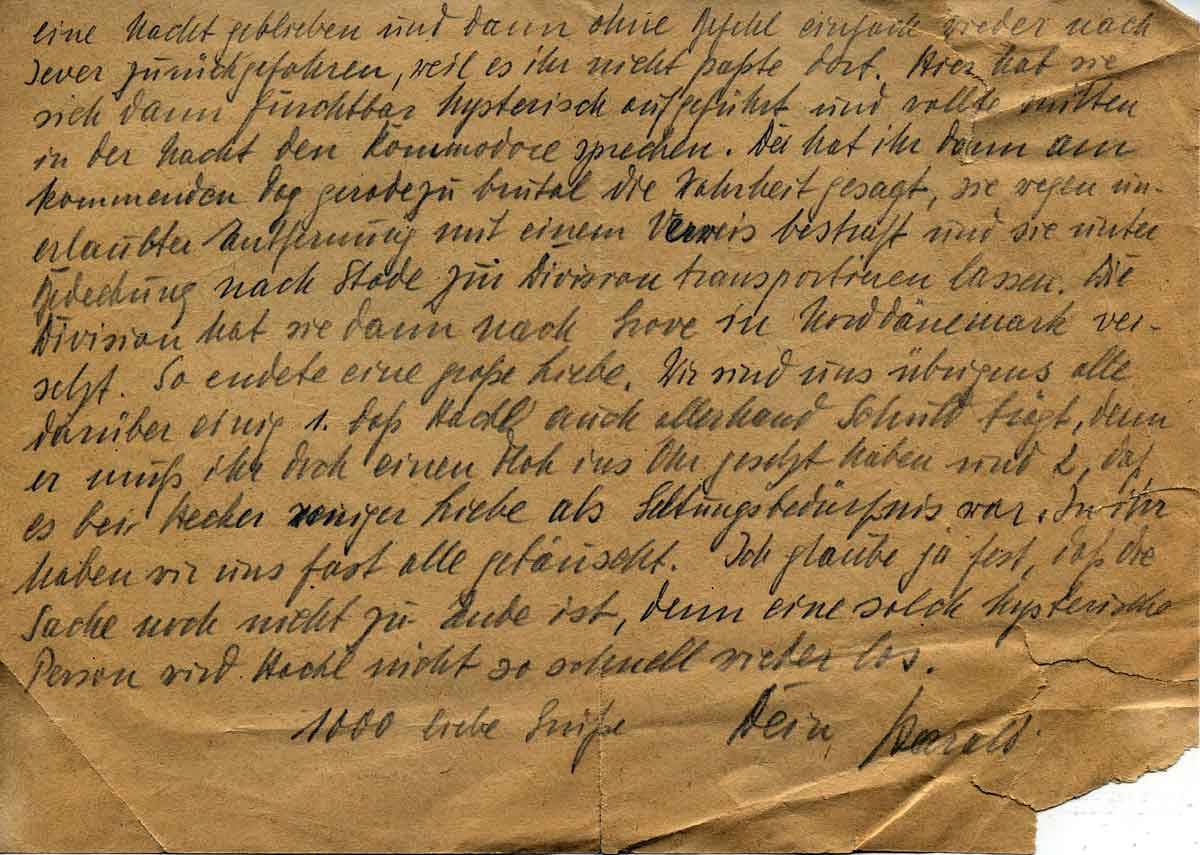 eine Nacht geblieben und dann ohne Befehl einfach wieder nach
Jever zurückgefahren, weil es ihr nicht paßte dort. Hier hat sie
sich dann furchtbar hysterisch aufgeführt und wollte mitten
in der Nacht den Kommodore sprechen. Der hat ihr dann am
kommenden Tag geradezu brutal die Wahrheit gesagt, sie wegen un-
erlaubter Entfernung mit einem Verweis bestraft und sie unter
Bedeckung nach Stade zur Division transportieren lassen. Die
Division hat sie dann nach Grove in Norddänemark ver-
setzt. So endete eine große Liebe. Wir sind uns übrigens alle
darüber einig 1. daß Hachl auch allerhand Schuld trägt, denn
er muß ihr doch einen Floh ins Ohr gesetzt haben und 2. daß
es bei Hecker weniger Liebe als Geltungsbedürfnis war. In ihr
haben wir uns fast alle getäuscht. Ich glaube ja fest, daß die
Sache noch nicht zu Ende ist, denn eine solch hysterische
Person wird Hachl nicht so schnell wieder los.
1000 liebe Grüße Dein Harald